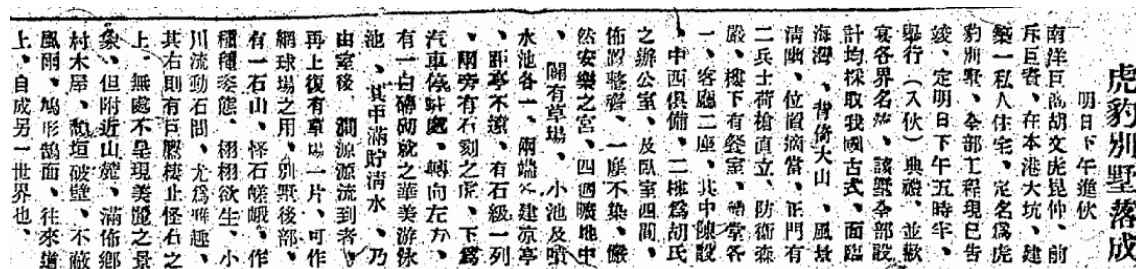 虎豹別墅落成
明日下午進伙
南洋巨商胡文虎昆仲、前
斥巨資、在本港大坑、建
築一私人住宅、定名爲虎
豹別墅、全部工程現已告
竣、定明日下午五時半、
舉行(入伙)典禮、並歡
宴各界名流、該墅全部設
計均採取我國古式、面臨
海灣、背倚大山、風景
清幽、位置適當、正門有
二兵士荷槍直立、防衛森
嚴、樓下有餐室、禮堂各
一、客廳二座、其中陳設
、中西俱備、二樓爲胡氏
之辦公室、及臥室四間、
佈置整齊、一塵不染、儼
然安樂之宮、四週曠地中
、闢有草場、小池及噴
水池各一、兩端各建凉亭
、距亭不遠、有石級一列
、兩旁有石刻之虎、下爲
汽車停駐處、轉向左方、
有一白磚砌就之華美游泳
池、其中滿貯清水、乃
由室後澗源源流到者、
再上復有草場一片、可作
網球場之用、別墅後部、
有一石山、怪石嵯峨、作
種種姿態、栩栩欲生、小
川流動石間、尤爲雅趣、
其右則有巨鷹棲止怪石之
上、無處不呈現美麗之景
象、但附近山麓、滿佈鄉
村木屋、頹垣破壁、不蔽
風雨、鳩形鵠面、往來道
上、自成另一世界也、